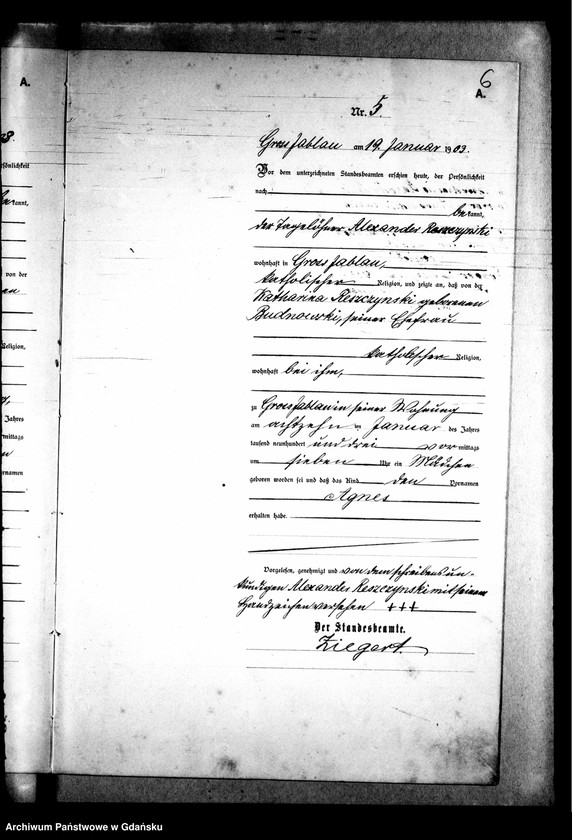 A.
6
A.
Nr. 5.
Gross Jablau am 19. Januar 1903.
Vor dem unterzeichneten Standesbeamten erschien heute, der Persönlichkeit
nach
be kannt,
der Tagelöhner Alexander Reszczynski
wohnhaft in Gross Jablau,
katholischer Religion, und zeigte an, daß von der
Katharina Reszczynski geborenen
Budnowski, seiner Ehefrau
katholischer Religion,
wohnhaft bei ihm,
zu Gross Jablau in seiner Wohnung
am achtzehn ten Januar des Jahres
tausend neunhundert und drei vor mittags
um sieben Uhr ein Mädchen
geboren worden sei und daß das Kind den Vornamen
Agnes
erhalten habe.
Vorgelesen, genehmigt und von dem schreibensun-
kundigen Alexander Reszczynski mit seinem
Handzeichen versehen +++
Der Standesbeamte.
Ziegert.
Archiwum Państwowe w Gdańsku